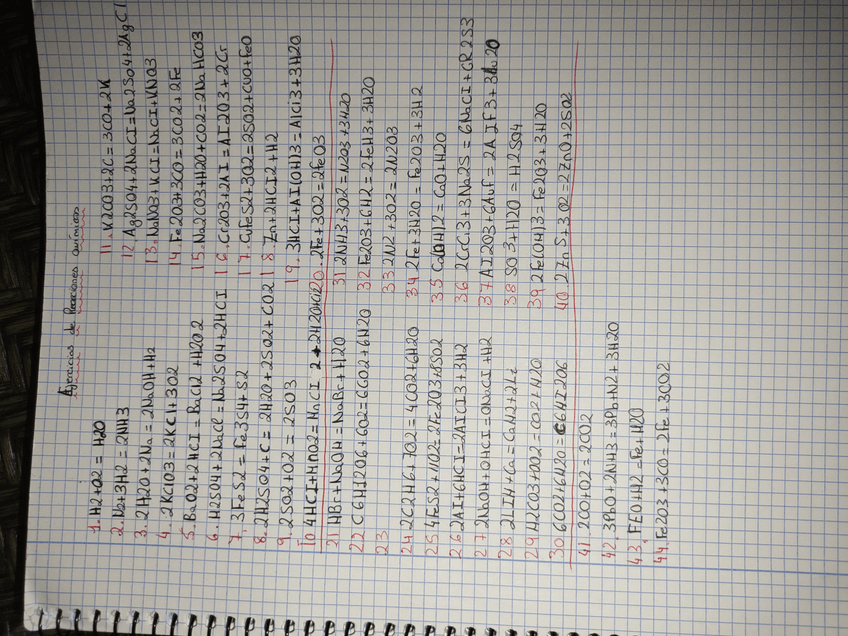 Ejercicios de Reacciones químicas
1. H2+O2 = H2O
2. N2+3H2 = 2NH3
3. 2H2O+2Na = 2NaOH+H2
4. 2KClO3 = 2KCl+3O2
5. BaO2+2HCl = BaCl2+H2O2
6. H2SO4+2NaCl = Na2SO4+2HCl
7. 3FeS2 = Fe3S4+S2
8. 2H2SO4+C = 2H2O+2SO2+CO2
9. 2SO2+O2 = 2SO3
10 4HCl+MnO2 = MnCl2+2H2O+Cl2
11. K2CO3+2C = 3CO+2K
12 Ag2SO4+2NaCl=Na2SO4+2AgCl
13. NaNO3+KCl = NaCl+KNO3
14. Fe2O3+3CO=3CO2+2Fe
15. Na2CO3+H2O+CO2=2NaHCO3
16. Cr2O3+2Al=Al2O3+2Cr
17. CuFeS2+3O2=2SO2+CuO+FeO
18 Zn+2HCl2+H2
19. 3HCl+Al(OH)3=AlCl3+3H2O
20. 2Fe+3O2=2FeO3
21 HBr+NaOH = NaBr+H2O
22 C6H12O6+6O2=6CO2+6H2O
23
24. 2C2H6+7O2=4CO2+6H2O
25 4FeS2+11O2=2Fe2O3+8SO2
26. 2Al+6HCl=2AlCl3+3H2
27. 2NaOH+OHCl=ONaCl+H2
28. 2LiH+Ca=CaH2+2Li
29. H2CO3+OO2=CO2+H2O
30. 6CO2+6H2O=C6H12O6
31 2NH3+3O2=N2O3+3H2O
32 Fe2O3+6H2=2FeH3+3H2O
33 2N2+3O2=2N2O3
34 2Fe+3H2O=Fe2O3+3H2
35 Ca(OH)2=CaO+H2O
36 2CrCl3+3Na2S=6NaCl+CR2S3
37 Al2O3+6AuF=2AlF3+3Au2O
38 SO3+H2O=H2SO4
39 2Fe(OH)3=Fe2O3+3H2O
40. 2ZnS+3O2=2ZnO+2SO2
41. 2CO+O2=2CO2
42. 3PbO+2NH3=3Pb+N2+3H2O
43. FEO+H2=Fe+H2O
44. Fe2O3+3CO=2Fe+3CO2